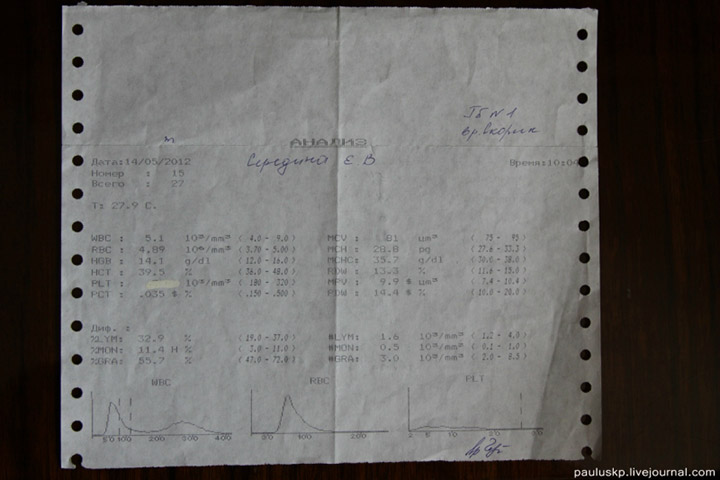 ГБ №1
вр. Скорик
АНАЛИЗ
Дата:14/05/2012 Середина Є В Время:10:04
Номер : 15
Всего : 27
T: 27.9 C.
WBC : 5.1 10³/mm³ ( 4.0 - 9.0 ) MCV : 81 um³ ( 75 - 95 )
RBC : 4,89 10⁶/mm³ ( 3.70 - 5.00 ) MCH : 28.8 pg ( 27.6 - 33.3 )
HGB : 14,1 g/dl ( 12.0 - 16.0 ) MCHC: 35,7 g/dl ( 30.0 - 38.0 )
HCT : 39,5 % ( 36.0 - 48.0 ) RDW : 13.3 % ( 11.6 - 15.0 )
PLT : 10³/mm³ ( 180 - 320 ) MPV : 9.9 $ um³ ( 7.4 - 10.4 )
PCT : .035 $ % ( .150 - .500 ) PDW : 14.4 % ( 10.0 - 20.0 )
Диф. :
%LYM: 32.9 % ( 19.0 - 37.0 ) #LYM: 1.6 10³/mm³ ( 1.2 - 4.0 )
%MON: 11.4 H % ( 3.0 - 11.0 ) #MON: 0.5 10³/mm³ ( 0.1 - 1.0 )
%GRA: 55.7 % ( 47.0 - 72.0 ) #GRA: 3.0 10³/mm³ ( 2.0 - 8.3 )
WBC RBC PLT
50 100 200 300 400 200 2 5 10 20
pauluskp.livejournal.com